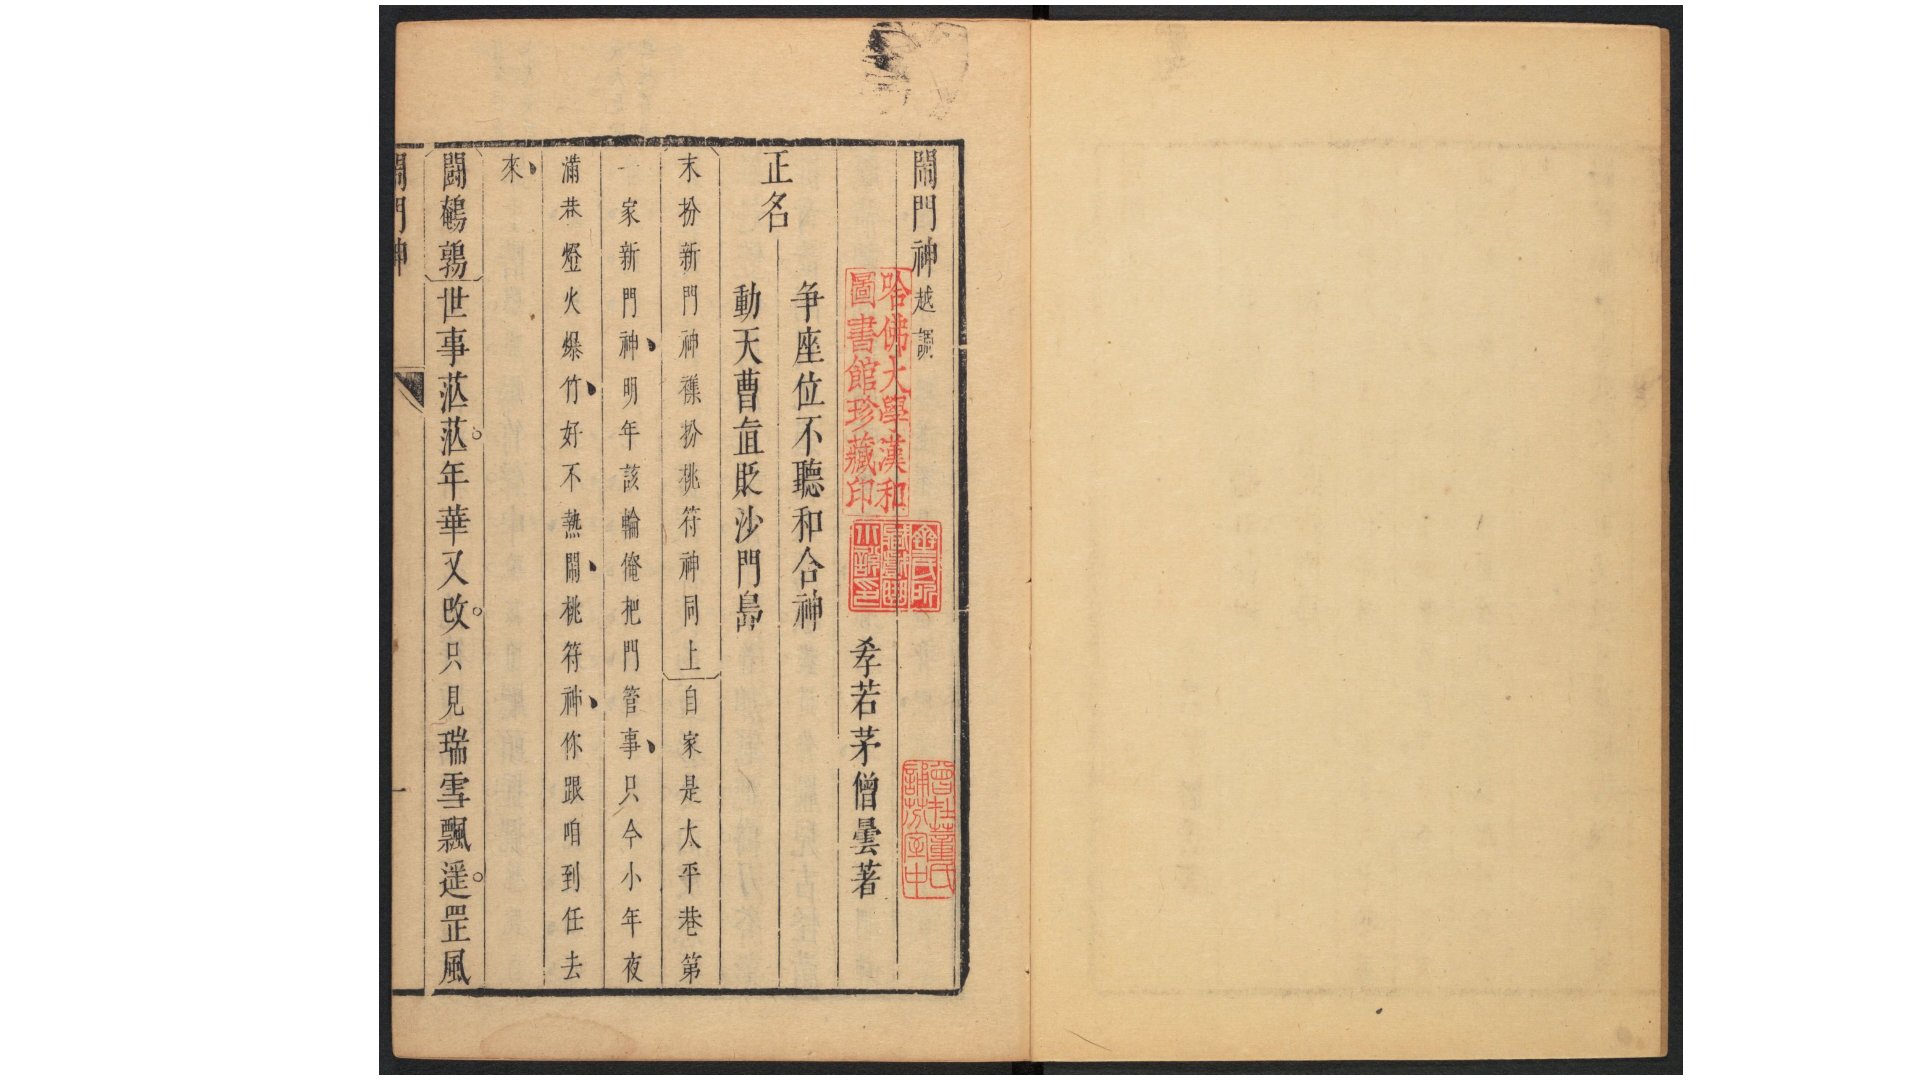 鬧門神越調
孝若茅僧曇著
正名
爭座位不聽和合神
動天曹直貶沙門島
末扮新門神襍扮桃符神同上自家是太平巷第
一家新門神明年該輪俺把門管事只今小年夜
滿巷燈火爆竹好不熱鬧桃符神你跟咱到任去
來
鬬鵪鶉世事茫茫年華又改只見瑞雪飄遥罡風
鬧門神
一
哈佛大學漢和
圖書館珍藏印
曾在董氏
誦芬室中